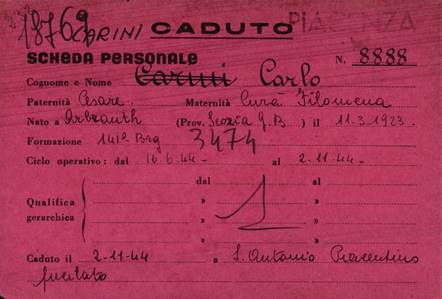 18769 CARINI CADUTO PIACENZA
SCHEDA PERSONALE N. 8888
Cognome e Nome Carini Carlo
Paternità Cesare Maternità Curà Filomena
Nato a Arbrauth (Prov. Scozia G.B.) il 11.3.1923.
Formazione 141ª Brg 3474
Ciclo operativo: dal 16.6.44 al 2-11-44
dal al
Qualifica » »
gerarchica » »
» »
Caduto il 2-11-44 a S. Antonio Piacentino
fucilato